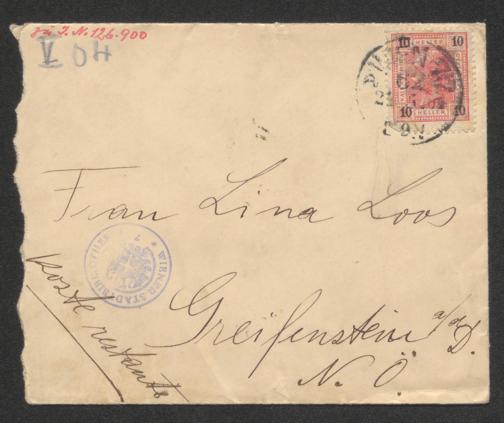 zu I. N. 126.900
V OH
10 10
10 HELLER 10
WIEN
Frau Lina Loos
WIENER STADTBIBLIOTHEK
poste restante
Greifenstein a/d D.
N. Ö.